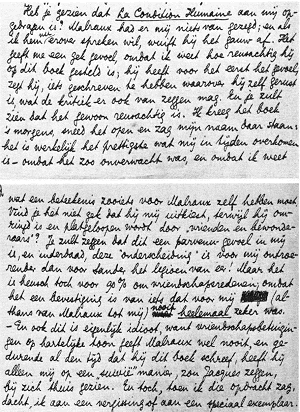 Heb je gezien dat La Condition Humaine aan mij op-
gedragen is? Malraux had er mij niets van gezegd; en als
ik hem erover spreken wil, wuift hij het gauw af. Het
geeft me een gek gevoel, omdat ik weet hoe reusachtig hij
op dit boek gesteld is; hij heeft voor het eerst het gevoel,
zegt hij, iets geschreven te hebben waarover hij zelf gerust
is, wat de kritiek er ook van zeggen mag. En je zult
zien dat het gewoon reusachtig is. Ik kreeg het boek
's morgens, sneed het open en zag mijn naam daar staan:
het is werkelijk het prettigste wat mij in tijden overkomen
is - omdat het zoo onverwacht was, en omdat ik weet
wat een beteekenis zooiets voor Malraux zelf hebben moet.
Vind je het niet gek dat hij mij uitkiest, terwijl hij om-
ringd is en platgeloopen wordt door "vrienden en bewonde-
raars"? Je zult zeggen dat dit een parvenu-gevoel in mij
is, en inderdaad, deze "onderscheiding" is voor mij ontroe-
render dan voor Sander het legioen van eer! Maar het
is heusch toch voor 90% om vriendschapsredenen; omdat
het een bevestiging is van iets dat voor mij (al-
thans van Malraux tot mij) nooit heelemaal zeker was.
- En ook dit is eigenlijk idioot, want vriendschapsbetuigin-
gen op hartelijke toon geeft Malraux wel nooit, en ge-
durende al den tijd dat hij dit boek schreef, heeft hij
alleen mij op een "suivie" manier, zou Jacques zeggen,
bij zich thuis gezien. En toch, toen ik die opdracht zag,
dacht ik aan een vergissing of aan een speciaal exemplaar.